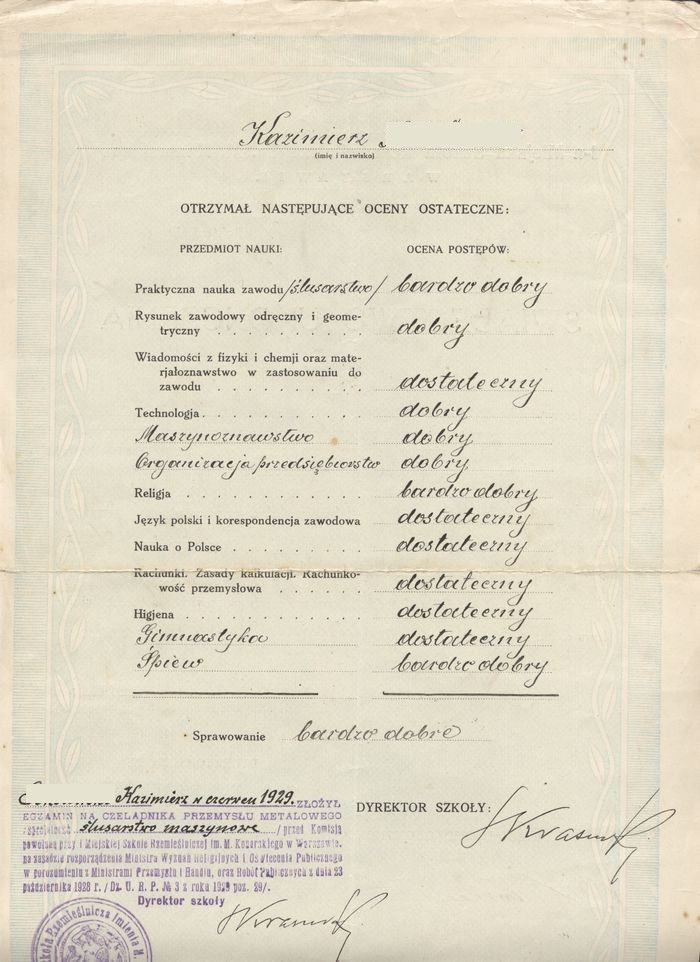 Kazimierz
(imię i nazwisko)
OTRZYMAŁ NASTĘPUJĄCE OCENY OSTATECZNE:
PRZEDMIOT NAUKI: OCENA POSTĘPÓW:
Praktyczna nauka zawodu /ślusarstwo/ bardzo dobry
Rysunek zawodowy odręczny i geome-
tryczny . . . . . . . . . . dobry
Wiadomości z fizyki i chemji oraz mate-
rjałoznawstwo w zastosowaniu do
zawodu . . . . . . . . . . dostateczny
Technologja . . . . . . . . . . dobry
Maszynoznawstwo dobry
Organizacja przedsiębiorstw dobry
Religja . . . . . . . . . . . bardzo dobry
Język polski i korespondencja zawodowa dostateczny
Nauka o Polsce . . . . . . . . . dostateczny
Rachunki. Zasady kalkulacji. Rachunko-
wość przemysłowa . . . . . . dostateczny
Higjena . . . . . . . . . . . dostateczny
Gimnastyka dostateczny
Śpiew bardzo dobry
Sprawowanie bardzo dobre
Kazimierz w czerwcu 1929. ZŁOŻYŁ
EGZAMIN NA CZELADNIKA PRZEMYSŁU METALOWEGO
ślusarstwo maszynowe / przed Komisją
powołaną przy I Miejskiej Szkole Rzemieślniczej im. M. Konarskiego w Warszawie.
na zasadzie rozporządzenia Ministra Wyznań Religijnych i Oświecenia Publicznego
w porozumieniu z Ministrami Przemysłu i Handlu, oraz Robót Publicznych z dnia 23
października 1928 r. /Dz. U. R. P. № 3 z roku 1929 poz. 29/.
Dyrektor szkoły
DYREKTOR SZKOŁY:
Szkoła Rzemieślnicza Imienia M.